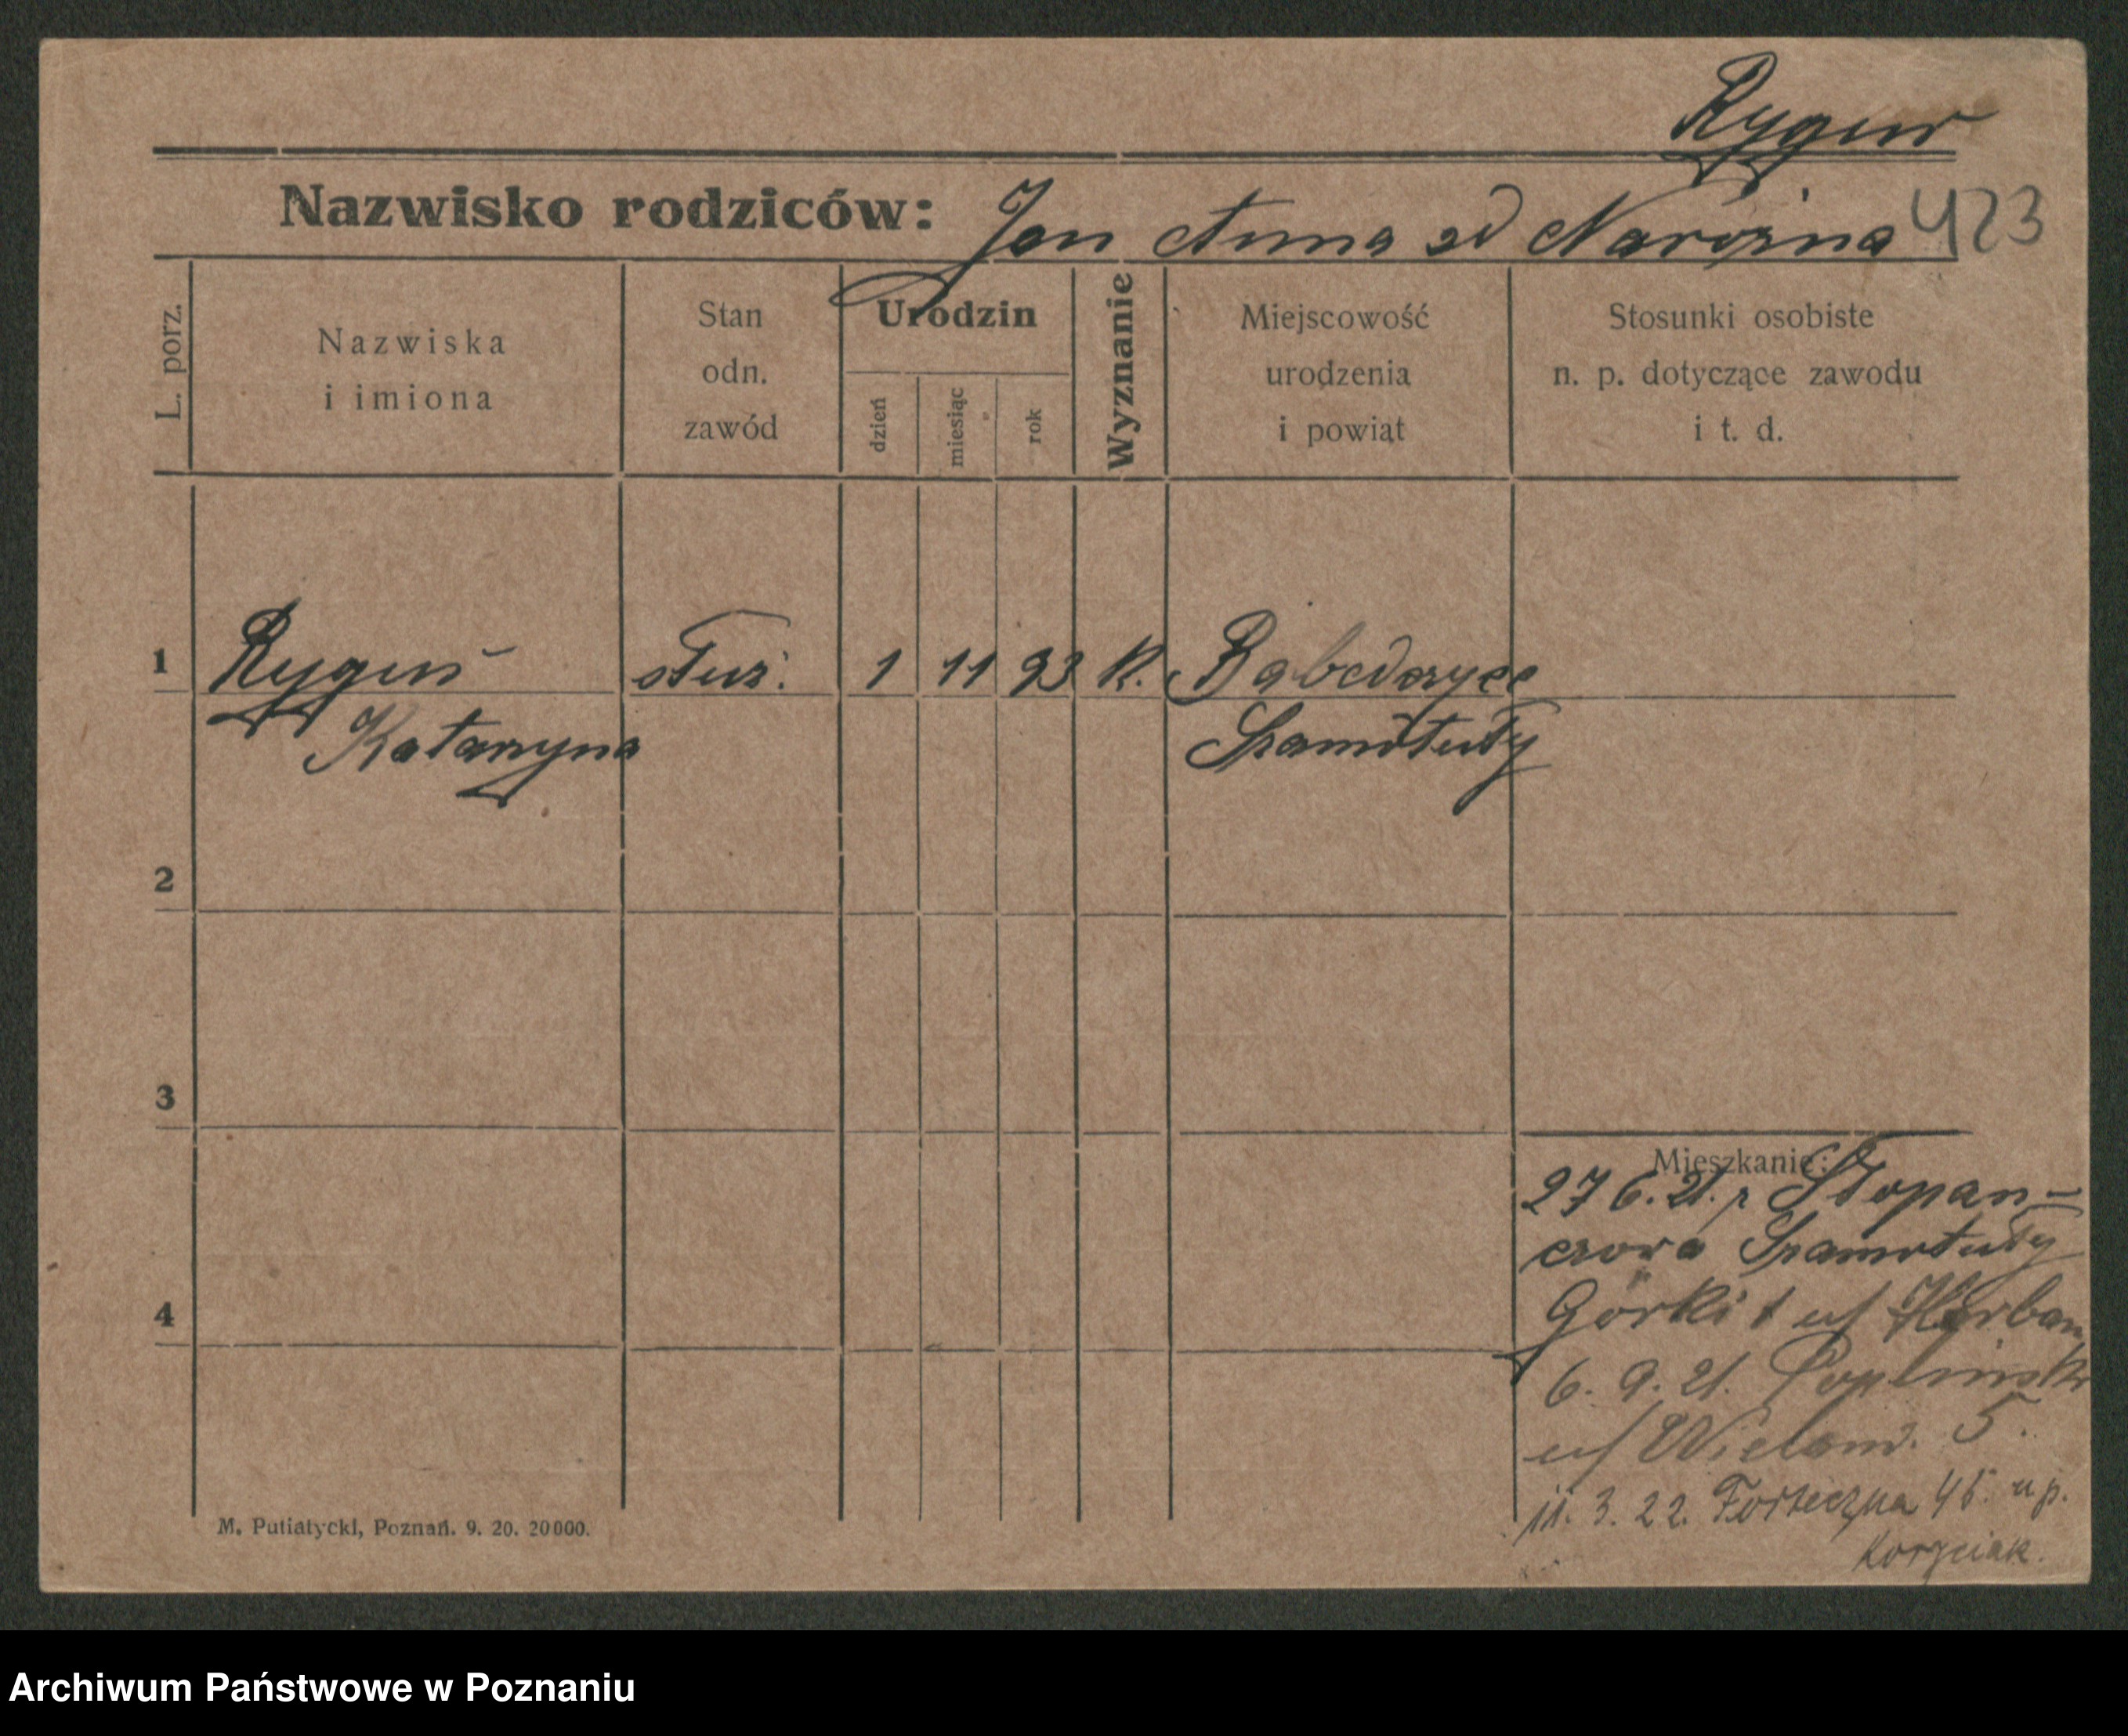 Ryguś
Nazwisko rodziców: Jan Anna zd Narożna 423
L. porz.
Nazwiska
i imiona
Stan
odn.
zawód
Urodzin
dzień
miesiąc
rok
Wyznanie
Miejscowość
urodzenia
i powiat
Stosunki osobiste
n. p. dotyczące zawodu
i t. d.
1 Ryguś służ. 1 11 93 K.
Katarzyna Szamotuły
2
3
Mieszkanie:
27 6. 21. z
Szamotuły
4
6. 9. 21.
5.
11. 3. 22. Forteczna 45. u p.
M. Putiatycki, Poznań. 9. 20. 20000.
Archiwum Państwowe w Poznaniu